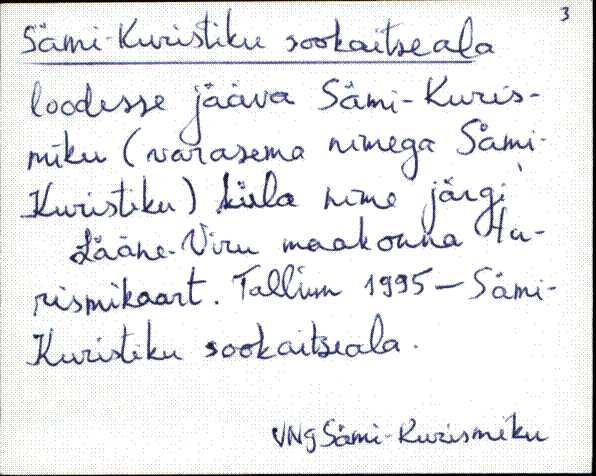 3
Sämi-Kuristiku sookaitseala
loodesse jääva Sämi-Kuris-
miku (varasema nimega Sämi-
Kuristiku) küla nime järgi
Lääne-Viru maakonna Tu-
rismikaart. Tallinn 1995 – Sämi-
Kuristiku sookaitseala.
VNg Sämi-Kurismiku